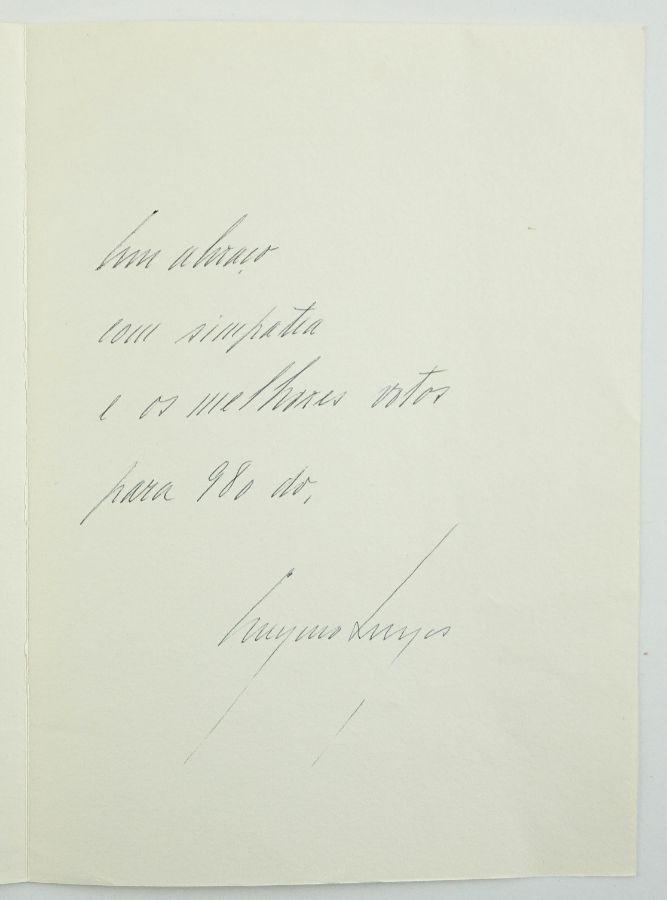 Um abraço
com simpatia
e os melhores votos
para 980 do,